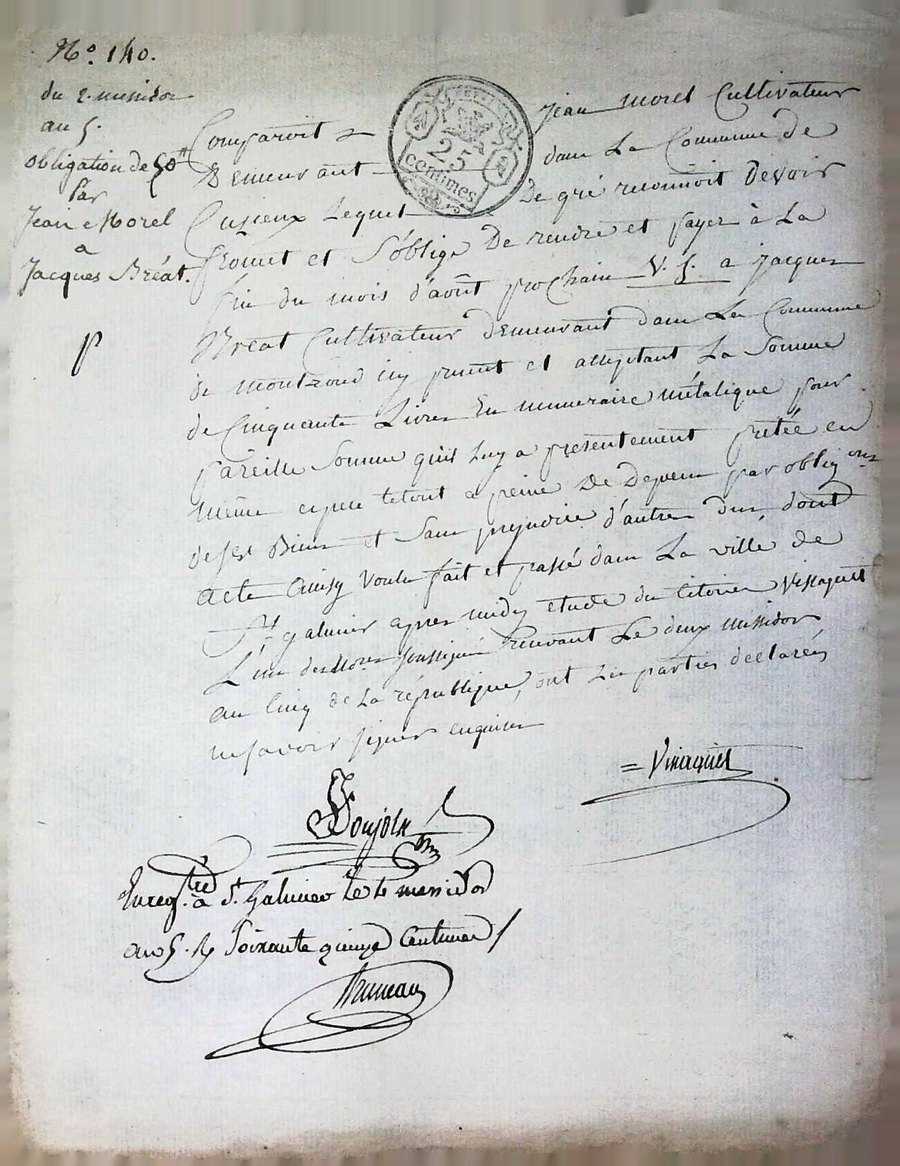 N.º 140.
du 2. messidor
au 5.
obligation de 50 ₶
Par
Jean Morel
a
Jacques Bréat.
P
25
centimes
Comparoit Jean Morel Cultivateur
Demeurant dans La Commune de
Cuzieux Lequel De gré reconnoit Devoir
promet et S'oblige De rendre et payer à La
fin du mois d'août prochain V. S. a Jacques
Breat Cultivateur demeurant dans La Commune
de montrond icy present et acceptant La Somme
de Cinquante Livres En numeraire métalique pour
pareille Somme qu'il Luy a presentement pretée en
même espece le tout a peine De Depens par oblig.ons
de ses Biens et Sans prejudice d'autres dus dont
acte Ainsy voulu fait et passé dans La ville de
St galmier apres midy etude du Citoien Viraquet
L'un des No.res soussignés recevant Le deux messidor
an Cinq de La république, ont Les parties declarées
ne savoir signer enquises
= Viraquet
Enreg.tré à St. Galmier le 4 messidor
an 5. R Soixante quinze Centimes
Bruneau